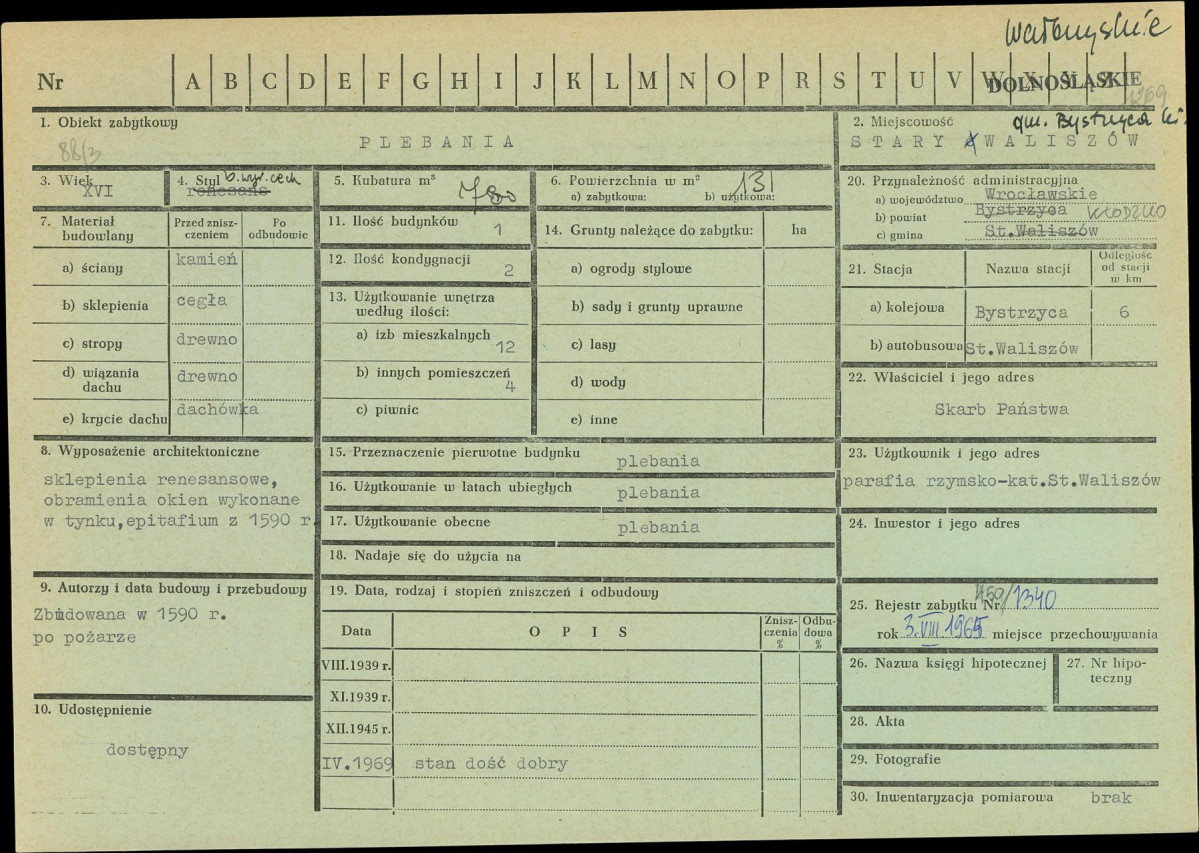 wałbrzyskie
Nr A B C D E F G H I J K L M N O P R S T U V W X Y Z
DOLNOŚLĄSKIE
1. Obiekt zabytkowy
88/3
PLEBANIA
2. Miejscowość
gm. Bystrzyca Kł.
STARY WALISZÓW
3. Wiek
XVI
4. Styl
b. wyr. cech
renesans
5. Kubatura m³
780
6. Powierzchnia w m²
a) zabytkowa: b) użytkowa:
131
7. Materiał budowlany
Przed zniszczeniem
Po odbudowie
a) ściany kamień
b) sklepienia cegła
c) stropy drewno
d) wiązania dachu drewno
e) krycie dachu dachówka
11. Ilość budynków 1
12. Ilość kondygnacji 2
13. Użytkowanie wnętrza według ilości:
a) izb mieszkalnych 12
b) innych pomieszczeń 4
c) piwnic
14. Grunty należące do zabytku: ha
a) ogrody stylowe
b) sady i grunty uprawne
c) lasy
d) wody
e) inne
20. Przynależność administracyjna
a) województwo Wrocławskie
b) powiat Bystrzyca KŁODZKO
c) gmina St.Waliszów
21. Stacja
Nazwa stacji
Odległość od stacji w km
a) kolejowa Bystrzyca 6
b) autobusowa St.Waliszów
22. Właściciel i jego adres
Skarb Państwa
8. Wyposażenie architektoniczne
sklepienia renesansowe,
obramienia okien wykonane
w tynku,epitafium z 1590 r.
15. Przeznaczenie pierwotne budynku plebania
16. Użytkowanie w latach ubiegłych plebania
17. Użytkowanie obecne plebania
18. Nadaje się do użycia na
23. Użytkownik i jego adres
parafia rzymsko-kat.St.Waliszów
24. Inwestor i jego adres
9. Autorzy i data budowy i przebudowy
Zbudowana w 1590 r.
po pożarze
19. Data, rodzaj i stopień zniszczeń i odbudowy
Data
OPIS
Zniszczenia %
Odbudowa %
VIII.1939 r.
XI.1939 r.
XII.1945 r.
IV.1969 stan dość dobry
25. Rejestr zabytku Nr 450/1340
rok 3.VIII 1965 miejsce przechowywania
26. Nazwa księgi hipotecznej
27. Nr hipoteczny
28. Akta
29. Fotografie
30. Inwentaryzacja pomiarowa brak
10. Udostępnienie
dostępny